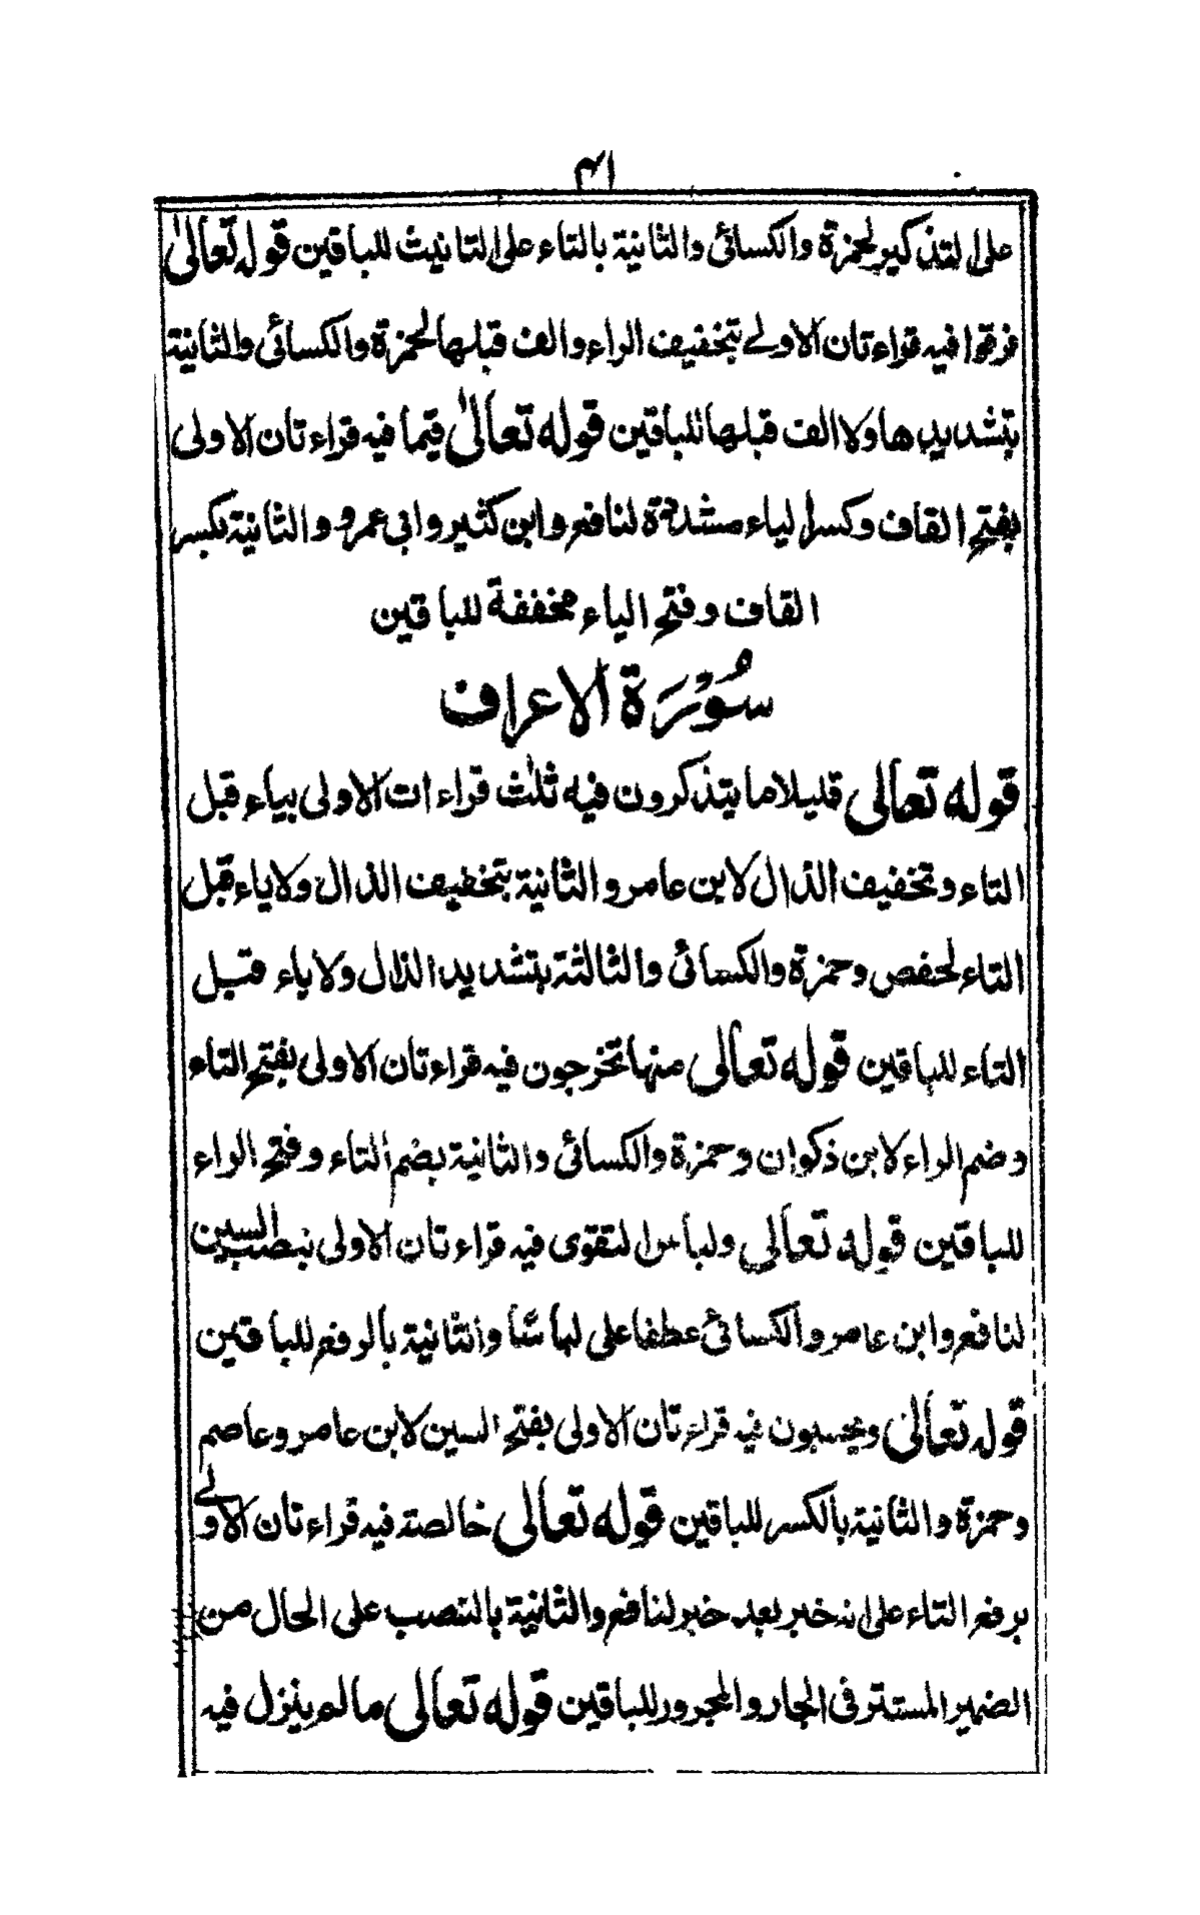 ٤١
على التذكير لحمزة والكسائى والثانية بالتاء على التانيث للباقين قوله تعالىٰ
فرقوا فيه قراءتان الاولے بتخفيف الراء والف قبلها لحمزة والكسائى والثانية
بتشديدها ولا الف قبلها للباقين قوله تعالىٰ قيما فيه قراءتان الاولى
بفتح القاف وكسر الياء مشددة لنافع وابن كثير وابى عمرو والثانية بكسر
القاف وفتح الياء مخففة للباقين
سُوْرَة الاعراف
قوله تعالى قليلا ما يتذكرون فيه ثلٰث قراءات الاولى بياء قبل
التاء وتخفيف الذال لابن عامر والثانية بتخفيف الذال ولا ياء قبل
التاء لحفص وحمزة والكسائى والثالثة بتشديد الذال ولا ياء قبل
التاء للباقين قوله تعالى منها تخرجون فيه قراءتان الاولى بفتح التاء
وضم الراء لابن ذكوان وحمزة والكسائى والثانية بضم التاء وفتح الراء
للباقين قوله تعالى ولباس التقوى فيه قراءتان الاولى بنصب السين
لنافع وابن عامر والكسائى عطفا على لباسًا والثانية بالرفع للباقين
قوله تعالىٰ ويحسبون فيه قراءتان الاولى بفتح السين لابن عامر وعاصم
وحمزة والثانية بالكسر للباقين قوله تعالى خالصة فيه قراءتان الاولے
برفع التاء على انه خبر بعد خبر لنافع والثانية بالنصب على الحال من
الضمير المستتر فى الجار والمجرور للباقين قوله تعالى ما لم ينزل فيه